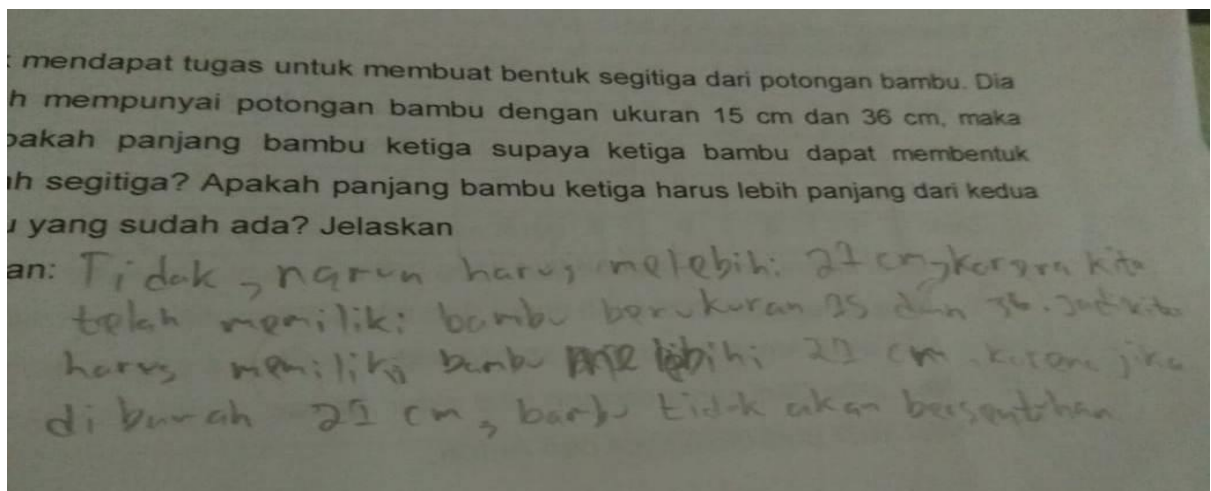 mendapat tugas untuk membuat bentuk segitiga dari potongan bambu. Dia
h mempunyai potongan bambu dengan ukuran 15 cm dan 36 cm, maka
pakah panjang bambu ketiga supaya ketiga bambu dapat membentuk
ah segitiga? Apakah panjang bambu ketiga harus lebih panjang dari kedua
u yang sudah ada? Jelaskan
an: Tidak, narun harus melebihi 21 cm, karena kita
telah memiliki bambu berukuran 15 dan 36. Jadi kita
harus memiliki bambu melebihi 21 cm karena jika
di bawah 21 cm, bambu tidak akan bersentuhan